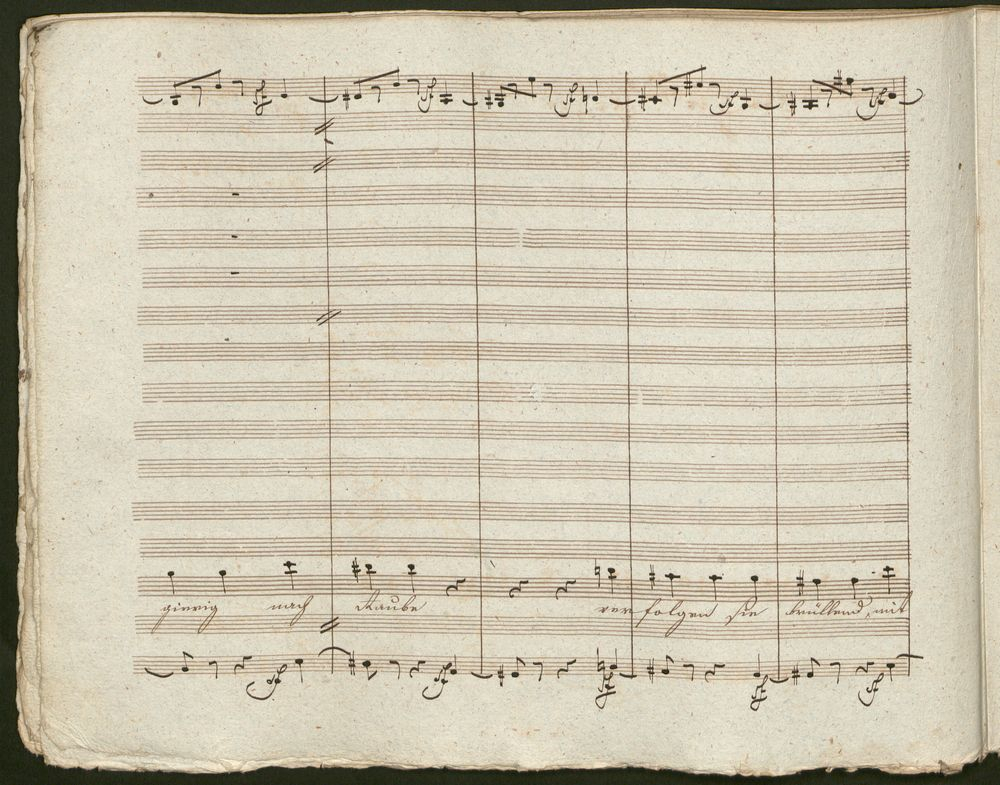 gierig nach Raube verfolgen sie brüllend, mit